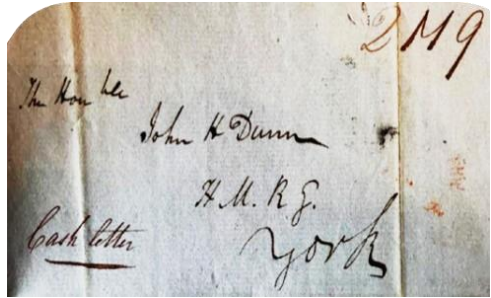 2 N 9
The Honble
John H Dunn
H. M. R G.
York
Cash letter